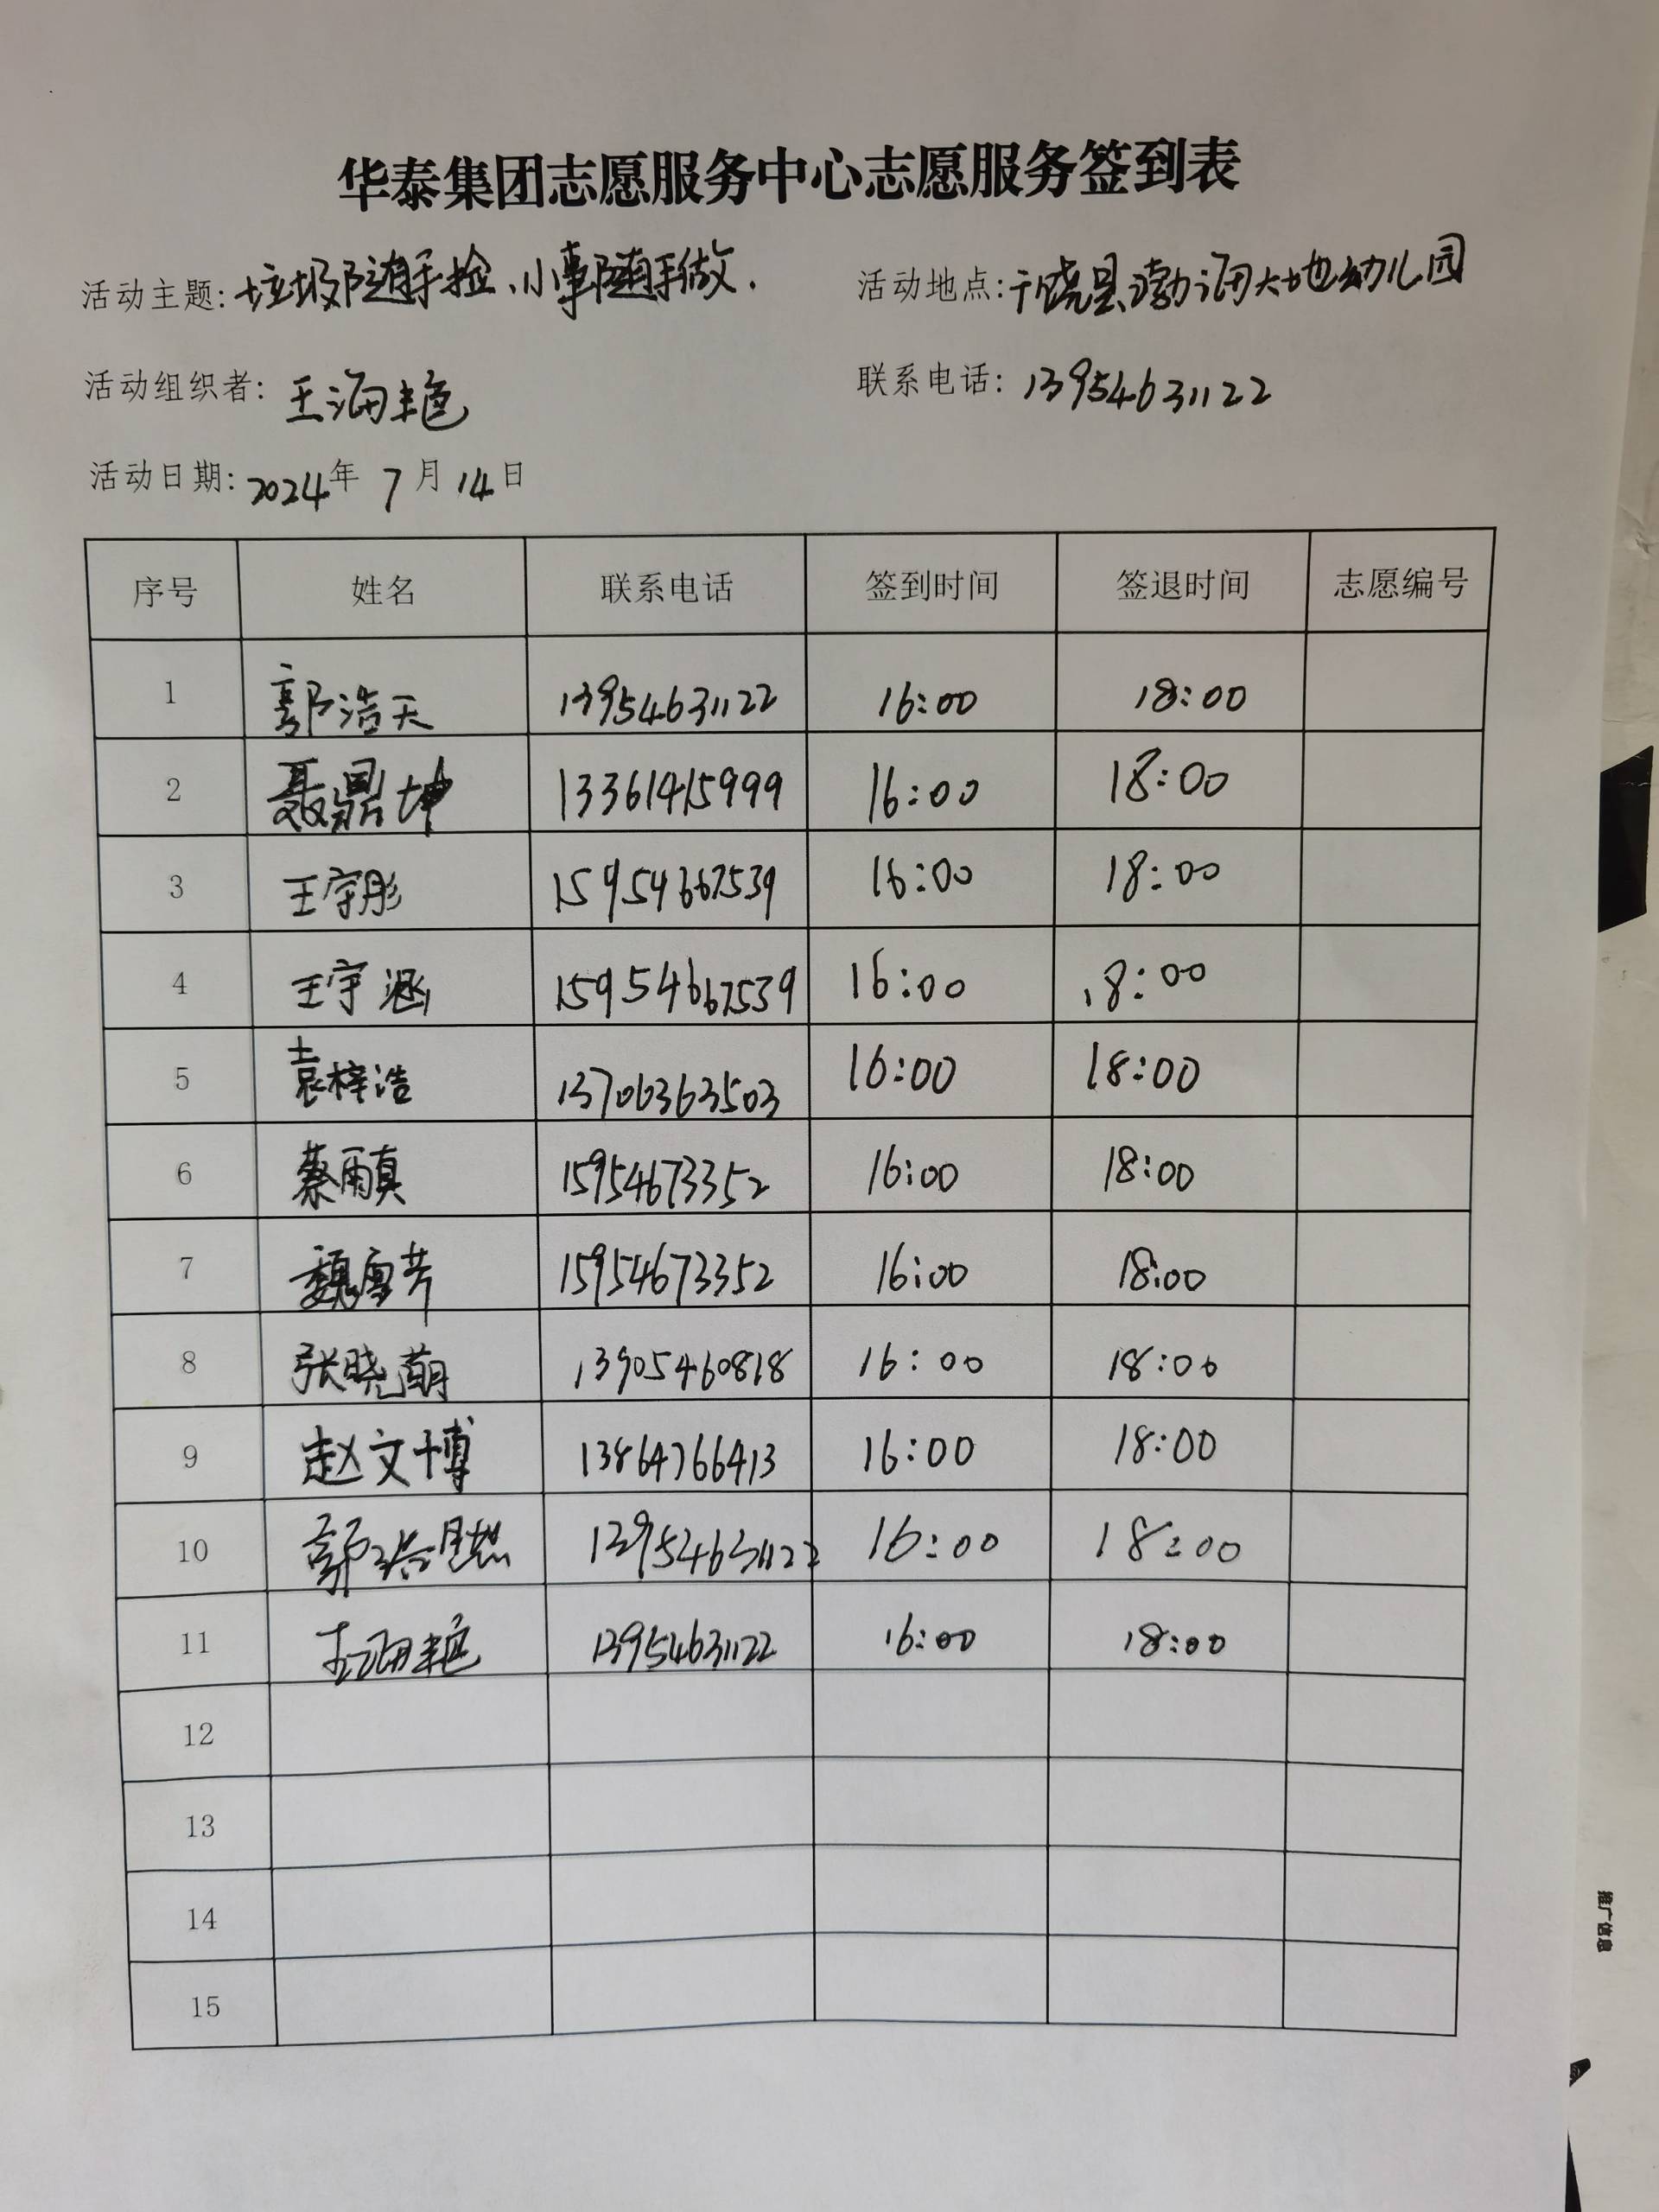 华泰集团志愿服务中心志愿服务签到表
活动主题:垃圾随手捡、小事随手做. 活动地点:广饶县渤海大地幼儿园
活动组织者:王海艳 联系电话:13954631122
活动日期:2024年 7月14日
序号 姓名 联系电话 签到时间 签退时间 志愿编号
1 郭浩天 13954631122 16:00 18:00
2 聂鼎坤 13361415999 16:00 18:00
3 王宇彤 15954667539 16:00 18:00
4 王宇涵 15954667539 16:00 18:00
5 袁梓浩 13706363503 16:00 18:00
6 蔡雨真 15954673352 16:00 18:00
7 魏雪芳 15954673352 16:00 18:00
8 张晓萌 13905460818 16:00 18:00
9 赵文博 13864766413 16:00 18:00
10 郭 13954631122 16:00 18:00
11 王海艳 13954631122 16:00 18:00
12
13
14
15
推广信息